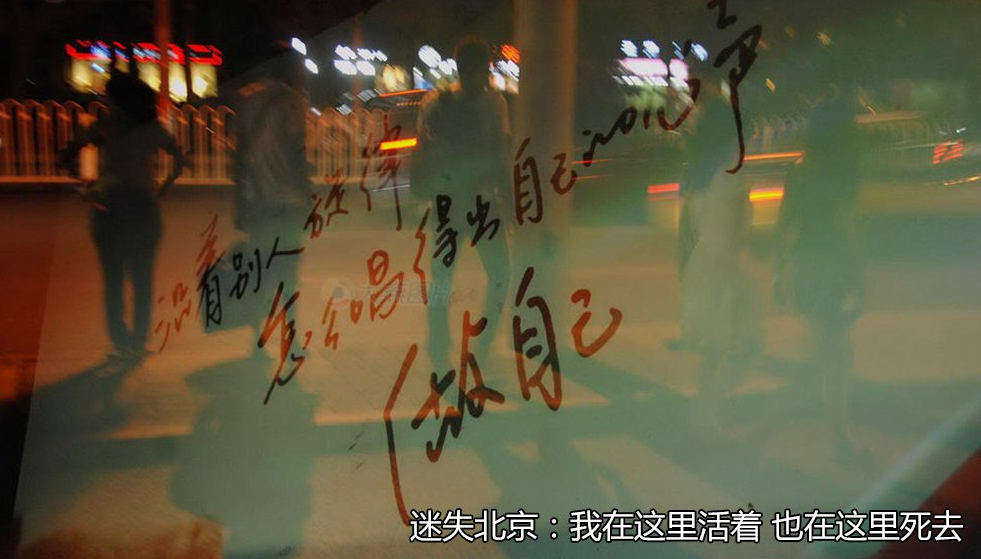 沿着别人旋律
怎么唱得出自己 声
做自己
迷失北京：我在这里活着 也在这里死去